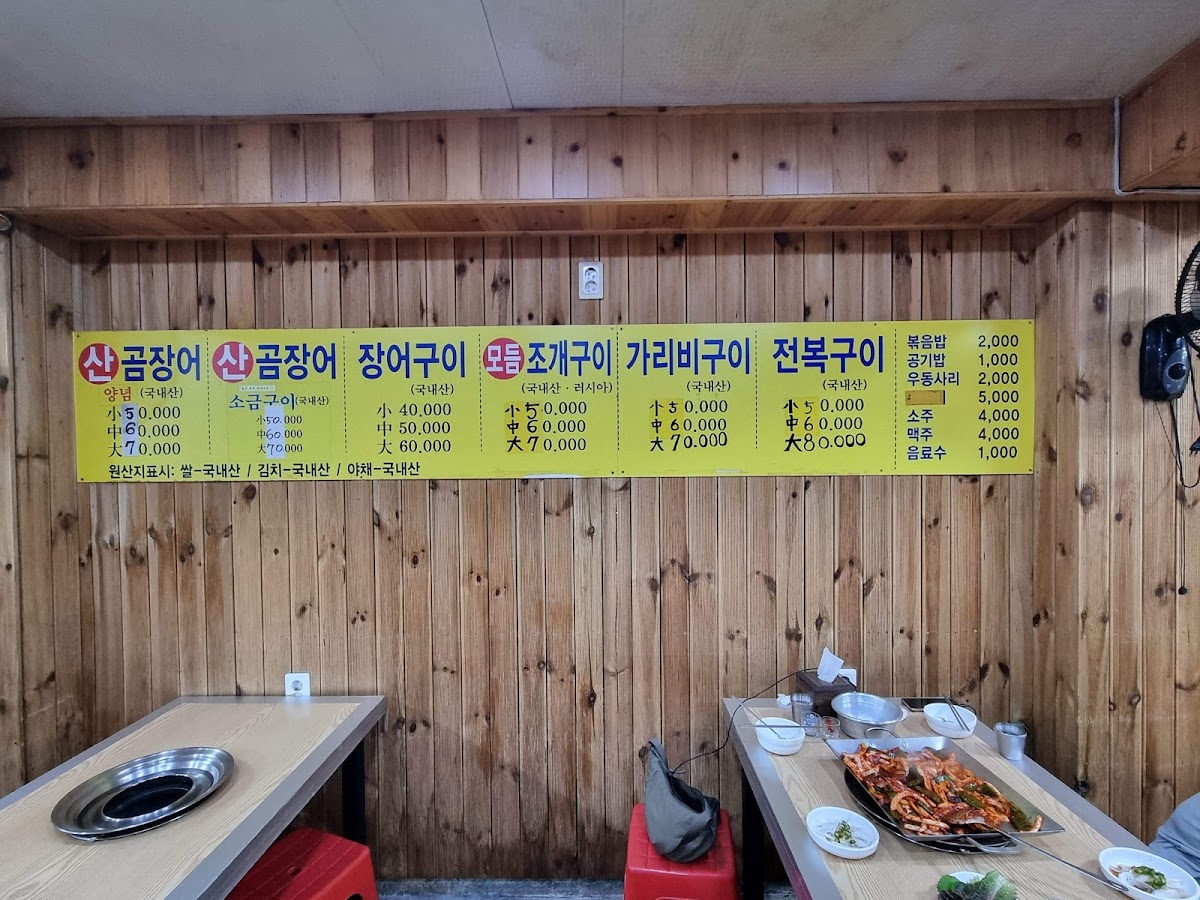 산 곰장어
양념 (국내산)
小 50,000
中 60,000
大 70,000
산 곰장어
소금구이(국내산)
小 50,000
中 60,000
大 70,000
장어구이
(국내산)
小 40,000
中 50,000
大 60,000
모듬 조개구이
(국내산 · 러시아)
小 50,000
中 60,000
大 70,000
가리비구이
(국내산)
小 50,000
中 60,000
大 70,000
전복구이
(국내산)
小 50,000
中 60,000
大 80,000
볶음밥 2,000
공기밥 1,000
우동사리 2,000
5,000
소주 4,000
맥주 4,000
음료수 1,000
원산지표시: 쌀-국내산 / 김치-국내산 / 야채-국내산